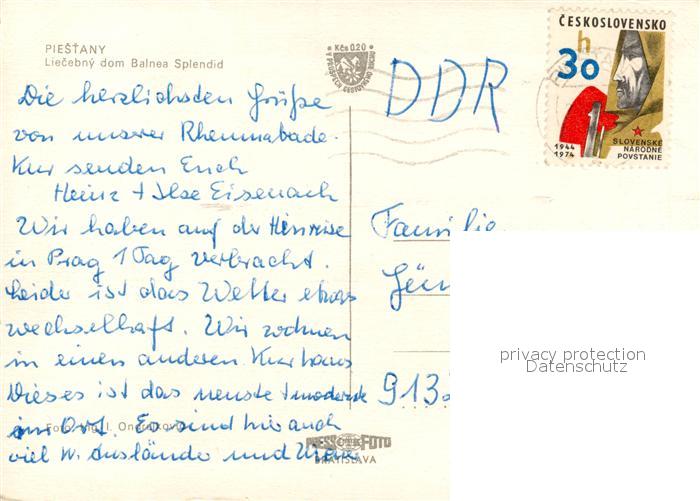 PIEŠŤANY
Liečebný dom Balnea Splendid
Kčs 0,20
ČESKOSLOVENSKO
h
30
1944
1974
SLOVENSKÉ
NÁRODNÉ
POVSTANIE
DDR
Die herzlichsten Grüße
von unserer Rheumabade-
Kur senden Euch
Heinz + Ilse Eisenach
Wir haben auf der Hinreise
in Prag 1 Tag verbracht.
Leider ist das Wetter etwas
wechselhaft. Wir wohnen
in einen anderen Kurhaus
Dieses ist das neuste + modernste
im Ort. Es sind hier auch
viel W. Ausländer und
Familie
913
privacy protection
Datenschutz
Foto: Ing. I.
PRESSFOTO
BRATISLAVA